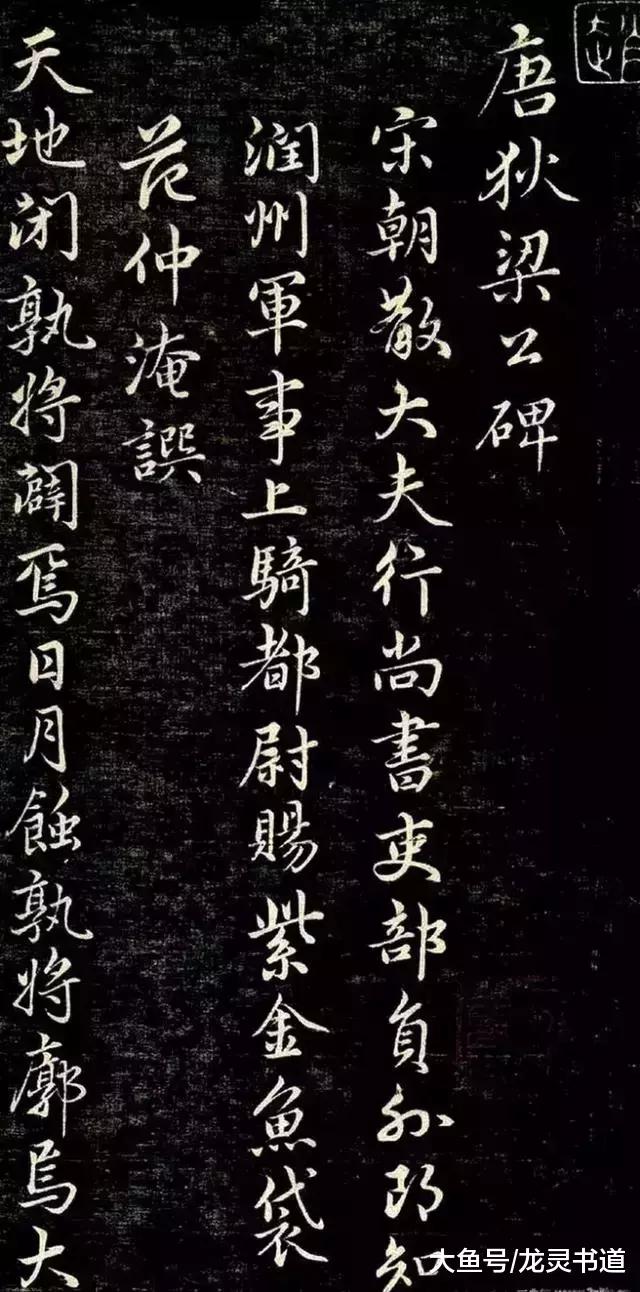 唐狄梁公碑
宋朝散大夫行尚書吏部員外郎知
潤州軍事上騎都尉賜紫金魚袋
范仲淹譔
天地閉孰將闢焉日月蝕孰將廓焉大
大鱼号/龙灵书道